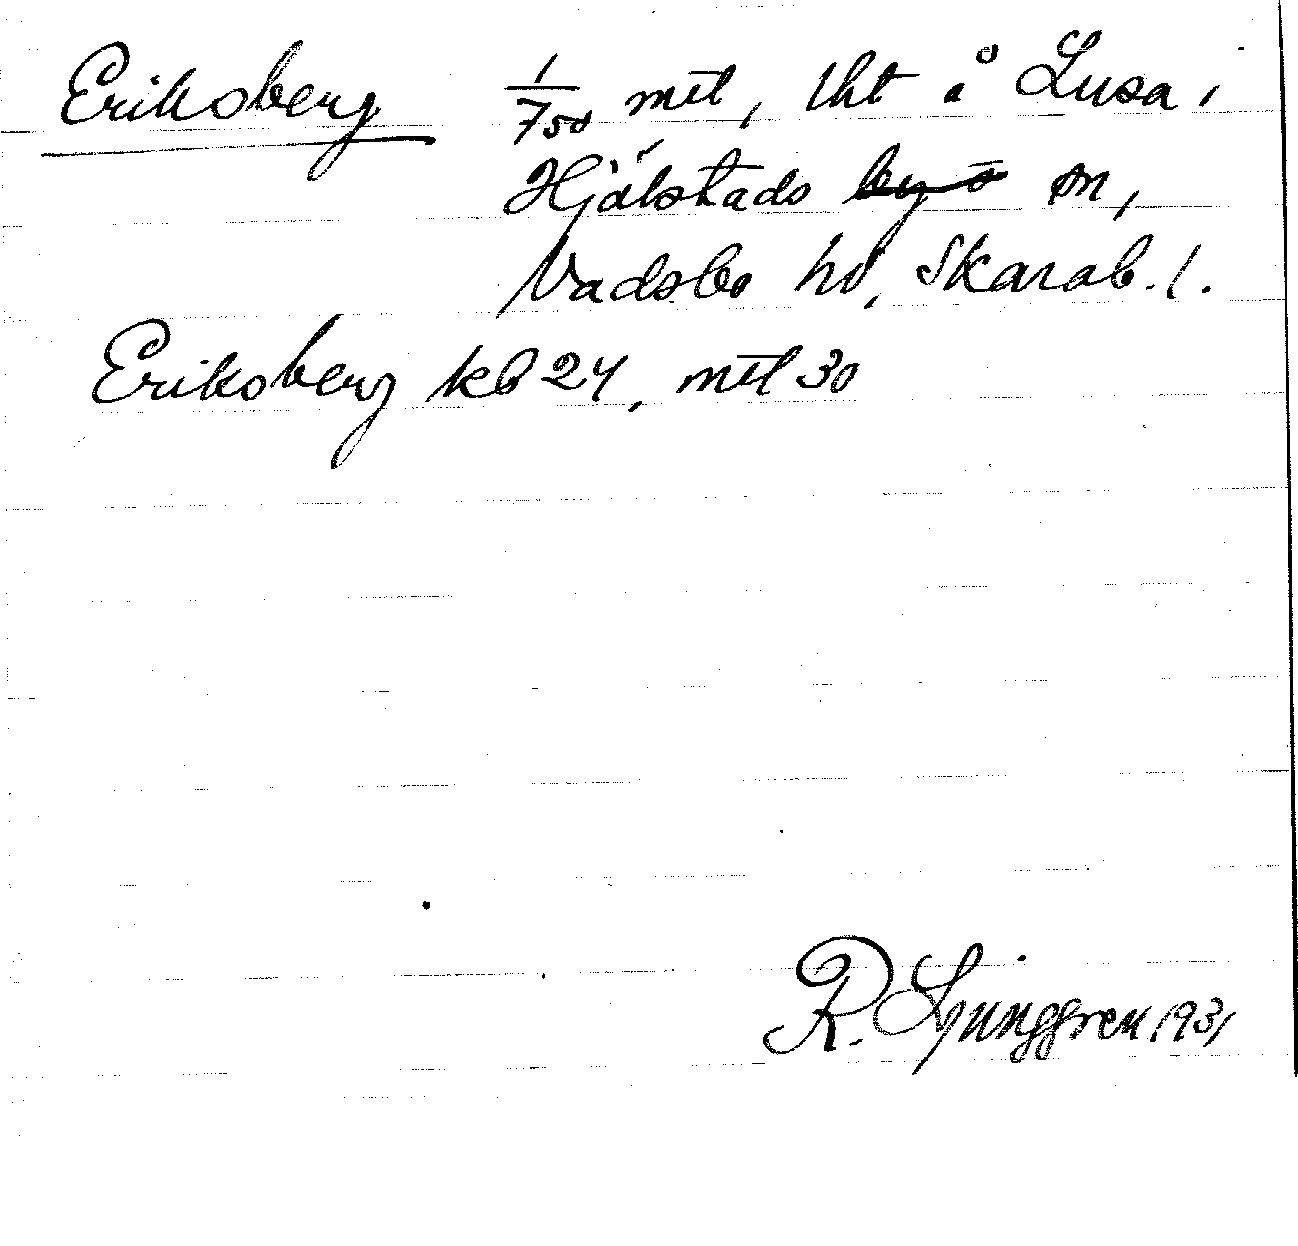 Eriksberg 1/750 mtl, lht å Lusa i
Hjälstads by o sn,
Vadsbo hd, Skarab. l.
Eriksberg kb 24, mtl 30
R. Ljunggren 1931